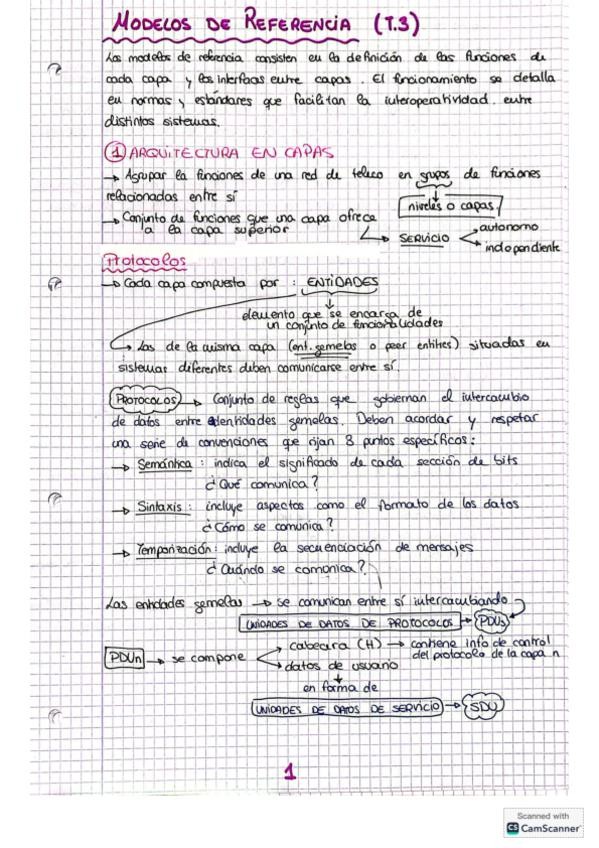 MODELOS DE REFERENCIA (T.3)
Los modelos de referencia consisten en la definición de las funciones de
cada capa y las interfaces entre capas. El funcionamiento se detalla
en normas y estándares que facilitan la interoperatividad entre
distintos sistemas.
① ARQUITECTURA EN CAPAS
→ Agrupar la funciones de una red de teleco en grupos de funciones
relacionadas entre sí
niveles o capas
→ Conjunto de funciones que una capa ofrece
a la capa superior
SERVICIO
autonomo
independiente
Protocolos
→ Cada capa compuesta por : ENTIDADES
elemento que se encarga de
un conjunto de funcionalidades
→ Las de la misma capa (ent. gemelas o peer entities) situadas en
sistemas diferentes deben comunicarse entre sí.
PROTOCOLOS → Conjunto de reglas que gobiernan el intercambio
de datos entre entidades gemelas. Deben acordar y respetar
una serie de convenciones que rijan 3 puntos específicos :
→ Semántica : indica el significado de cada sección de bits
¿Qué comunica?
→ Sintaxis : incluye aspectos como el formato de los datos
¿Cómo se comunica?
→ Temporización : incluye la secuenciación de mensajes
¿Cuándo se comunica?
Las entidades gemelas → se comunican entre sí intercambiando
UNIDADES DE DATOS DE PROTOCOLOS → PDUs
PDUn → se compone
cabecera (H) → contiene info de control
del protocolo de la capa n
datos de usuario
en forma de
UNIDADES DE DATOS DE SERVICIO → SDU
1
Scanned with
CS CamScanner